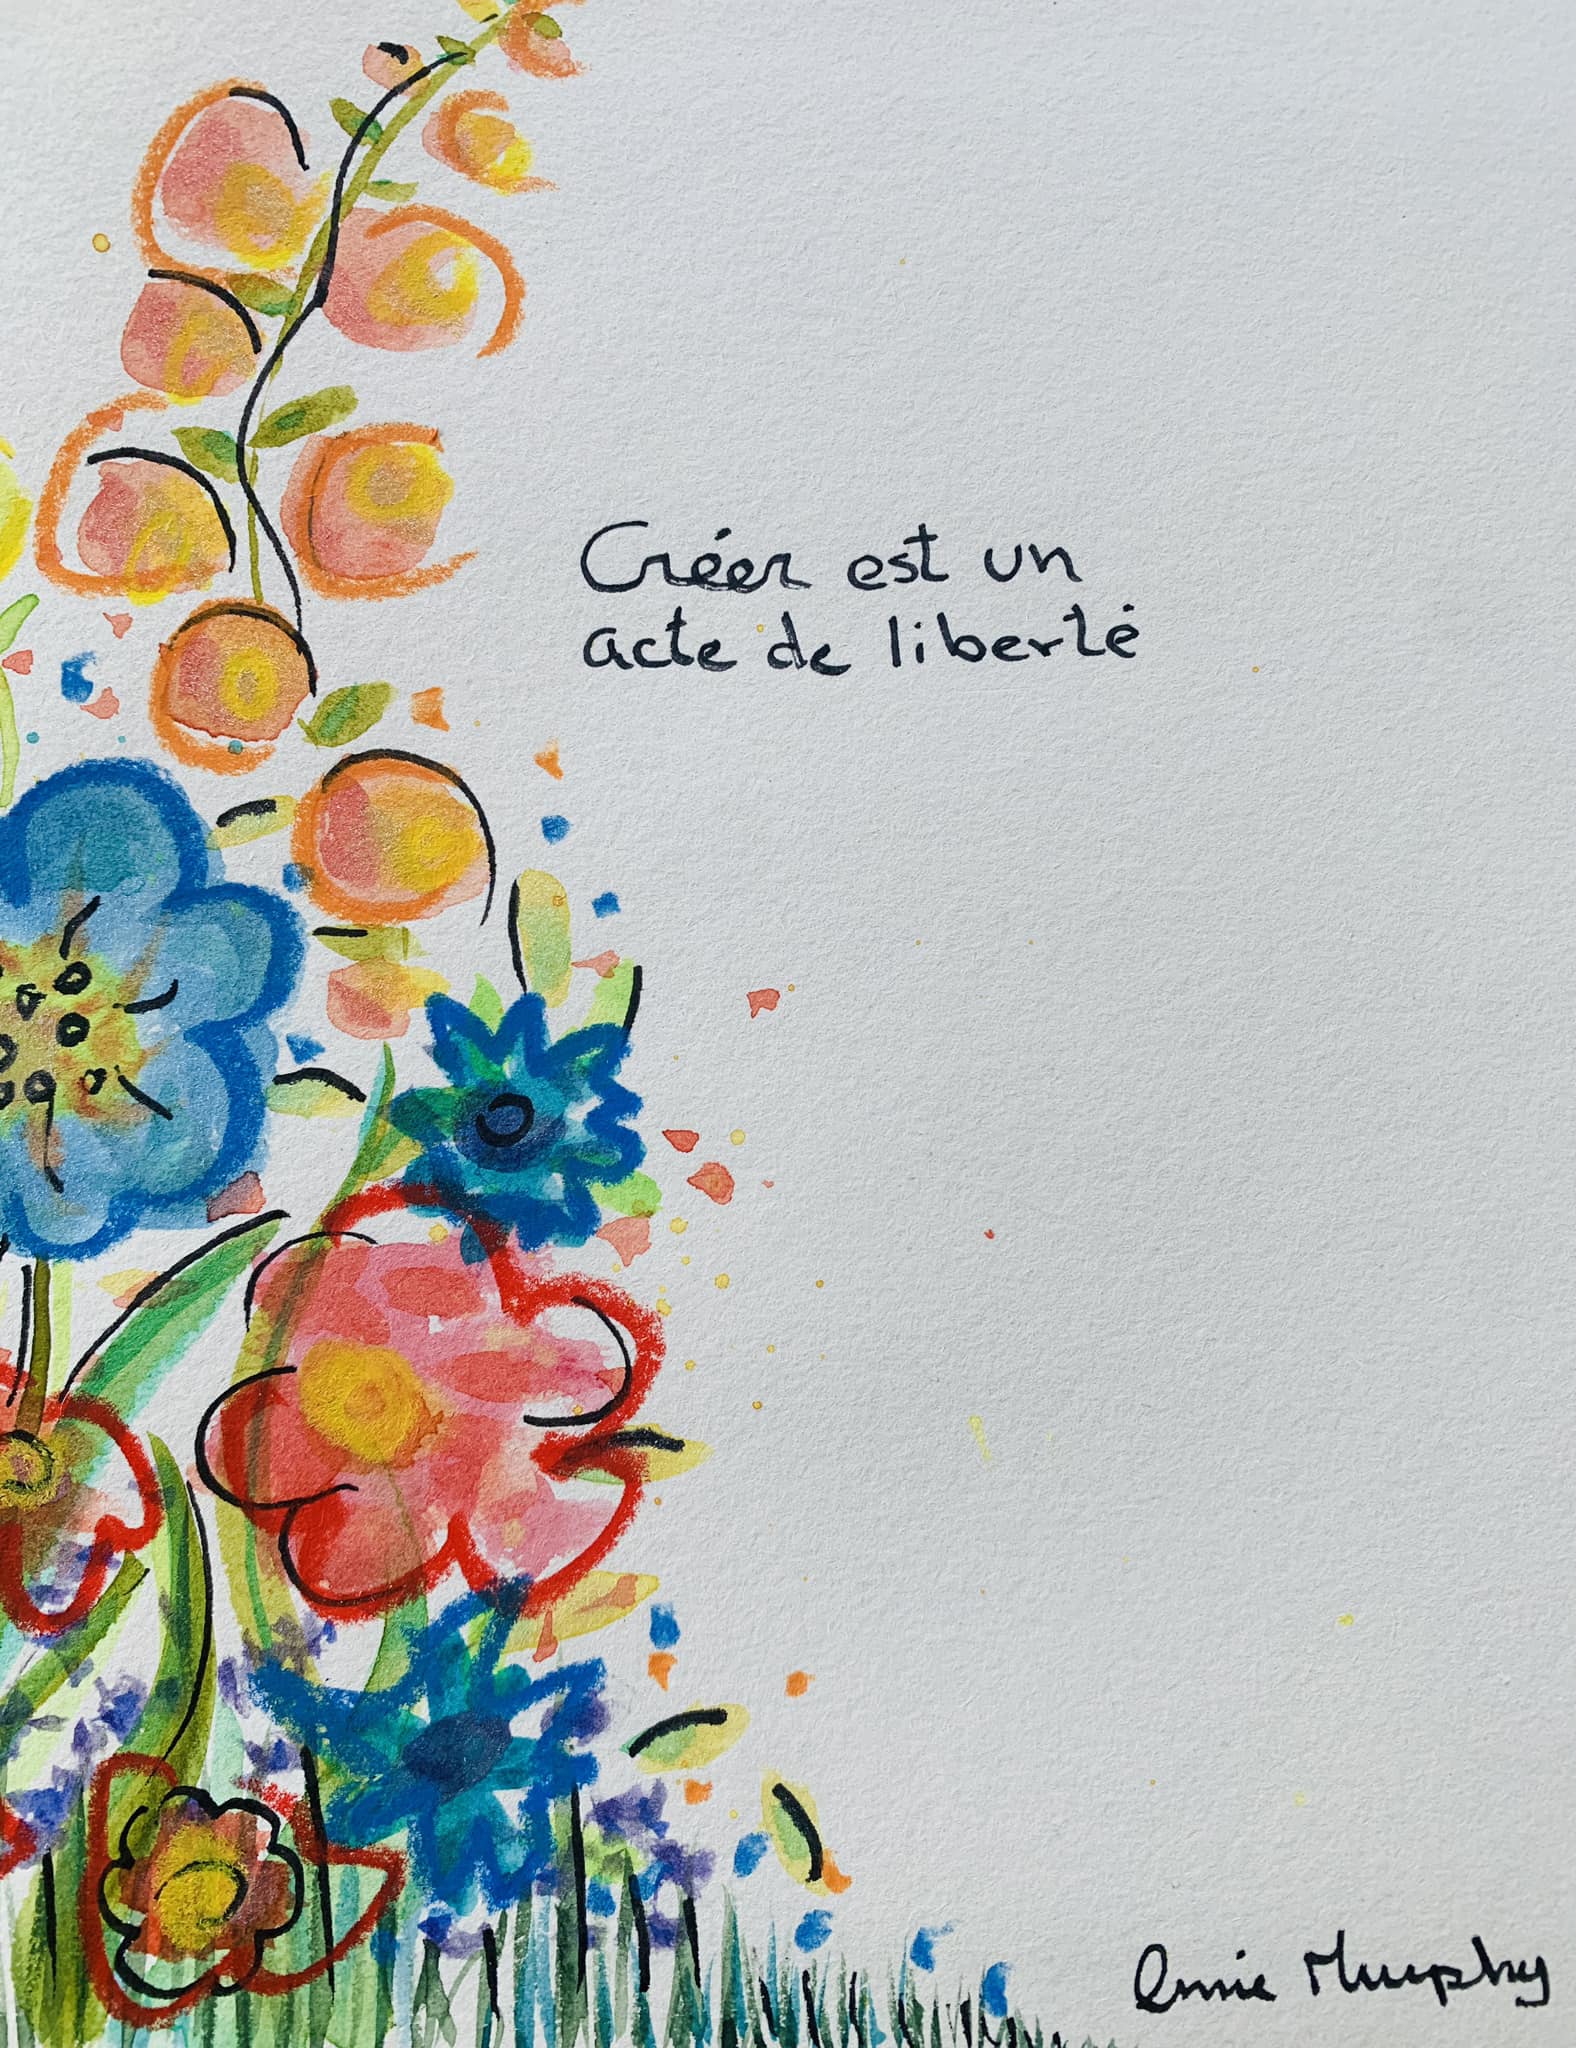 Créer est un
acte de liberté
Annie Murphy